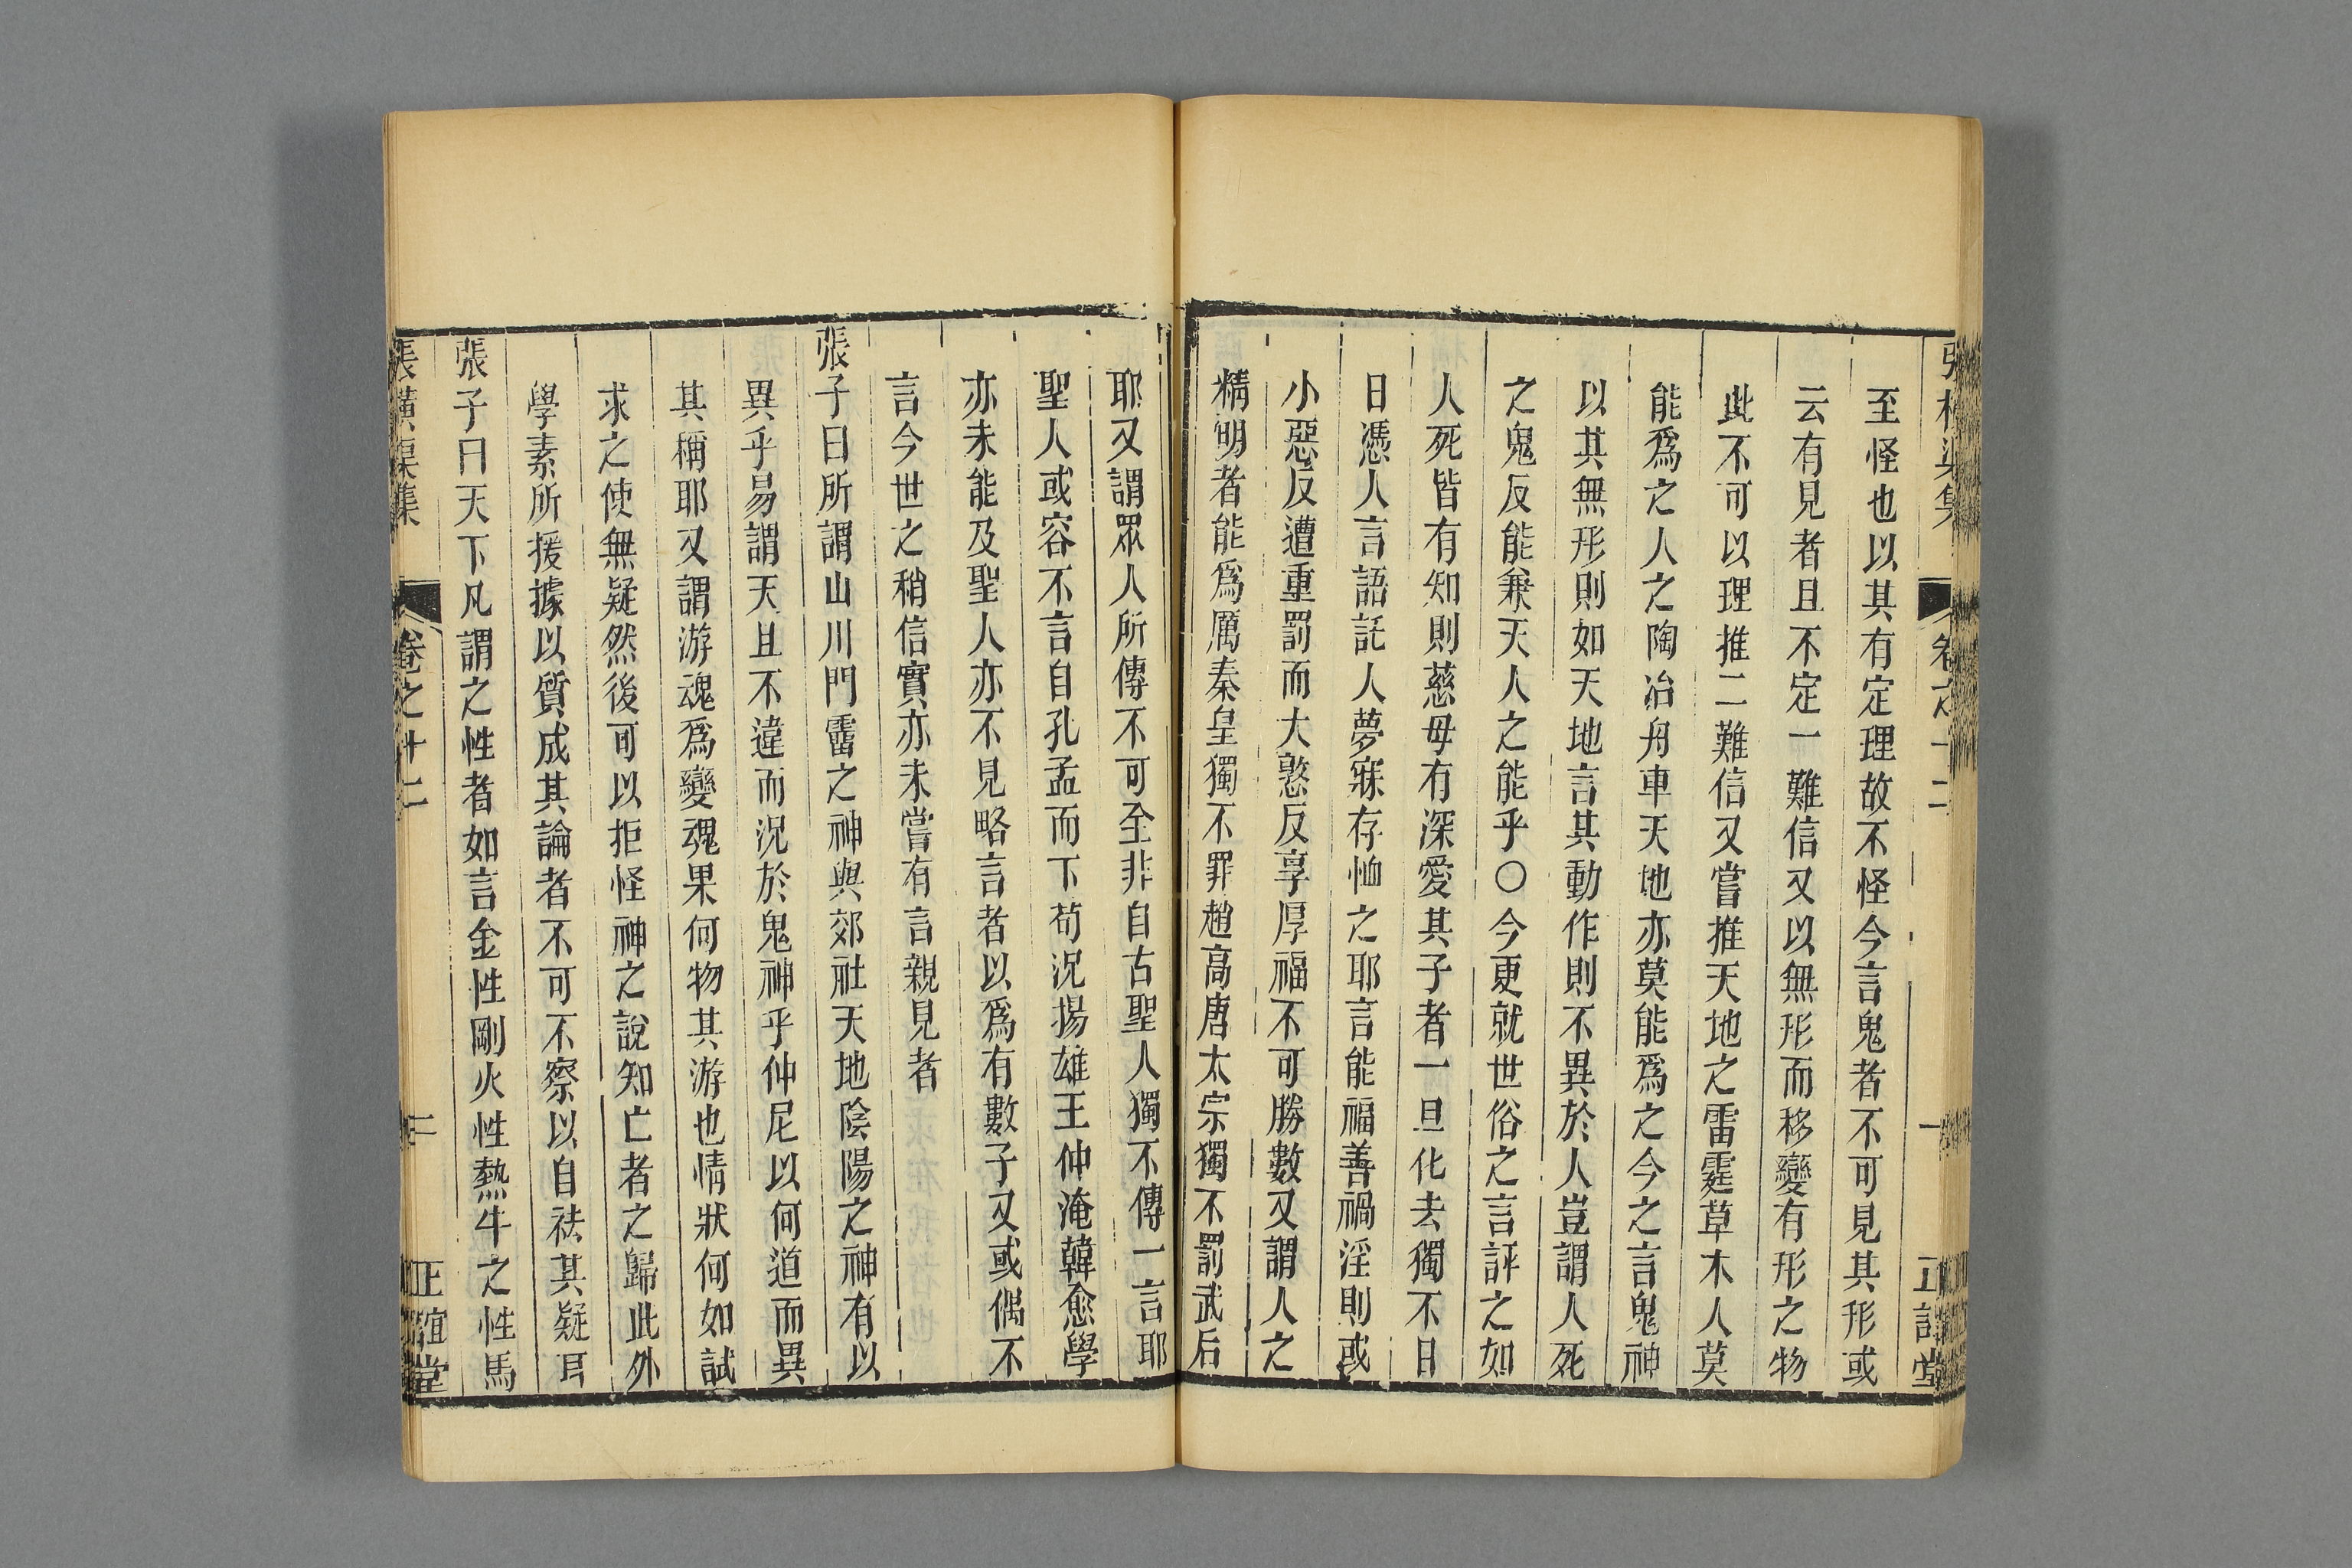 至怪也以其有定理故不怪今言鬼者不可見其形或
云有見者且不定一難信又以無形而移變有形之物
此不可以理推二難信又嘗推天地之雷霆草木人莫
能爲之人之陶冶舟車天地亦莫能爲之今之言鬼神
以其無形則如天地言其動作則不異於人豈謂人死
之鬼反能兼天人之能乎〇今更就世俗之言評之如
人死皆有知則慈母有深愛其子者一旦化去獨不日
日憑人言語託人夢寐存恤之耶言能福善禍淫則或
小惡反遭重罰而大憝反享厚福不可勝數又謂人之
精明者能爲厲秦皇獨不罪趙高唐太宗獨不罰武后
耶又謂眾人所傳不可全非自古聖人獨不傳一言耶
聖人或容不言自孔孟而下荀況揚雄王仲淹韓愈學
亦未能及聖人亦不見略言者以爲有數子又或偶不
言今世之稍信實亦未嘗有言親見者
張子曰所謂山川門霤之神與郊社天地陰陽之神有以
異乎易謂天且不違而況於鬼神乎仲尼以何道而異
其稱耶又謂游魂爲變魂果何物其游也情狀何如試
求之使無疑然後可以拒怪神之說知亡者之歸此外
學素所援據以質成其論者不可不察以自祛其疑耳
張子曰天下凡謂之性者如言金性剛火性熱牛之性馬
張橫渠集
卷之十二
二
正誼堂